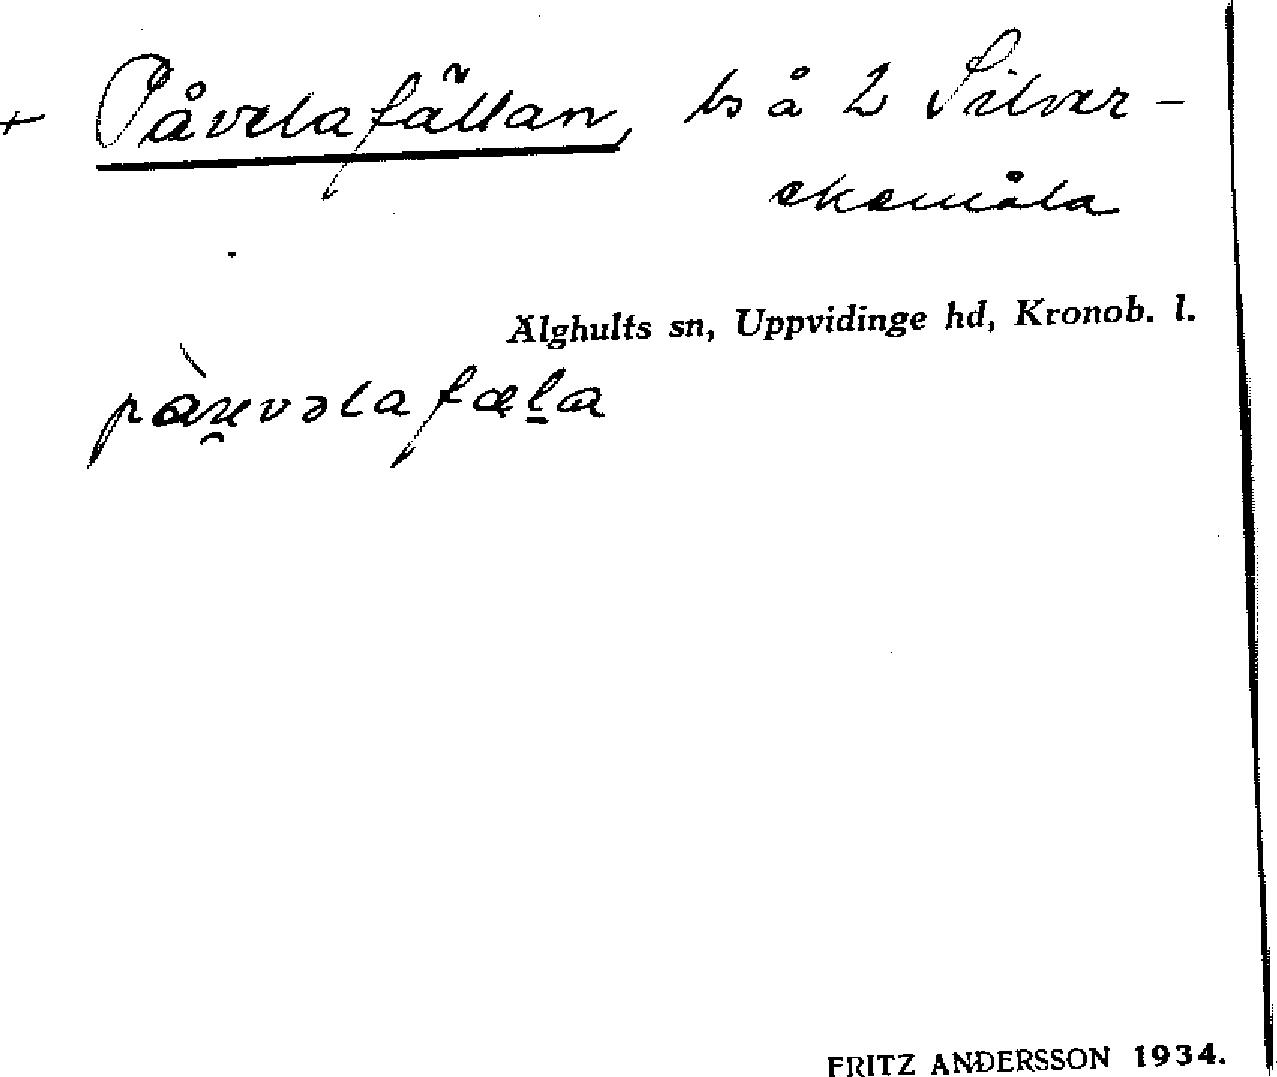 + Påvelafällan, ts å 2 Silver-
ekemåla
Älghults sn, Uppvidinge hd, Kronob. l.
pàu̯vəlafæl̲a
FRITZ ANDERSSON 1934.